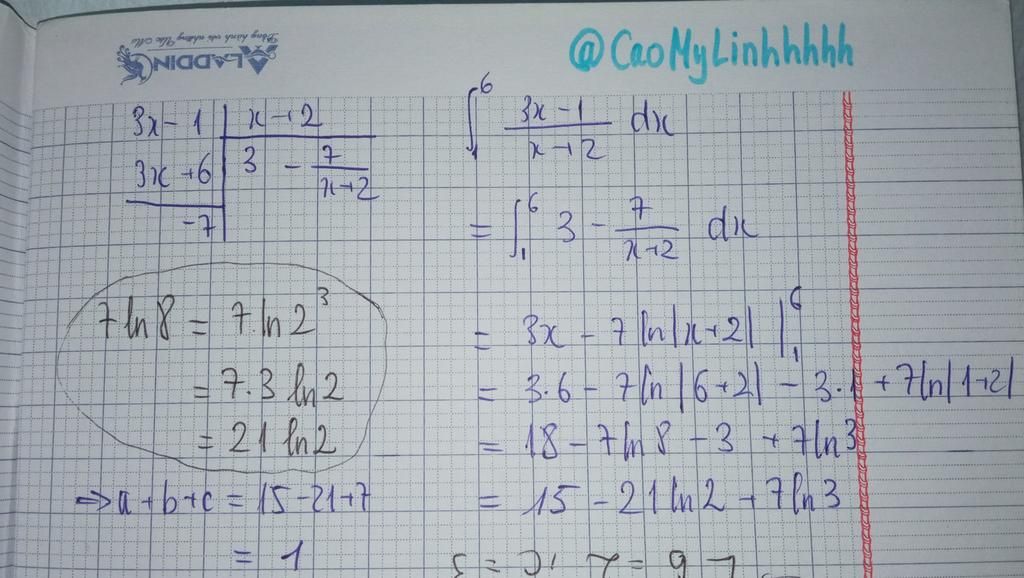 ALADDIN
Đồng hành với những Ước Mơ
@CaoMyLinhhhhh
3x - 1 | x + 2
3x + 6 | 3 - 7/(x+2)
-7
7ln8 = 7.ln2³
= 7.3 ln2
= 21 ln2
⇒ a + b + c = 15 - 21 + 7
= 1
∫₁⁶ (3x - 1)/(x + 2) dx
= ∫₁⁶ 3 - 7/(x+2) dx
= 3x - 7ln|x+2| |₁⁶
= 3.6 - 7ln|6+2| - 3.1 + 7ln|1+2|
= 18 - 7ln8 - 3 + 7ln3
= 15 - 21ln2 + 7ln3